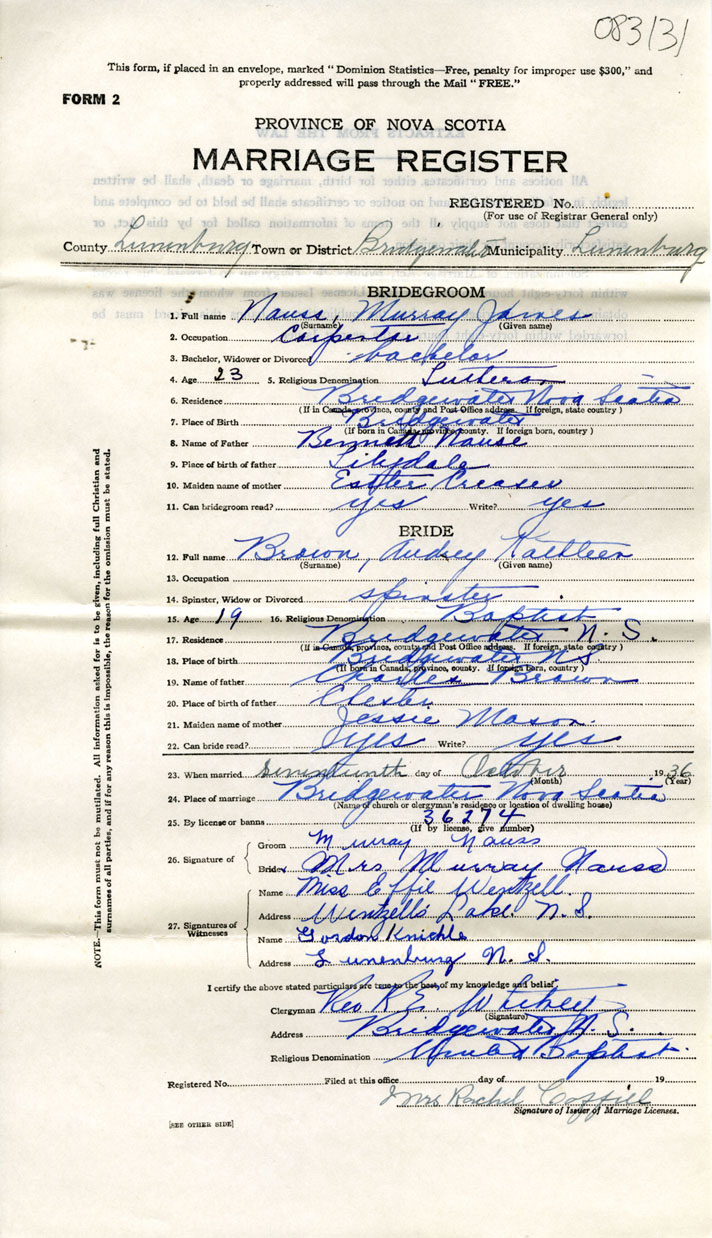 083131
This form, if placed in an envelope, marked "Dominion Statistics—Free, penalty for improper use $300," and
properly addressed will pass through the Mail "FREE."
FORM 2
PROVINCE OF NOVA SCOTIA
MARRIAGE REGISTER
REGISTERED No.
(For use of Registrar General only)
County Lunenburg Town or District Bridgewater Municipality Lunenburg
BRIDEGROOM
1. Full name Nauss, Murray James
(Surname) (Given name)
2. Occupation Carpentor
3. Bachelor, Widower or Divorced bachelor
4. Age 23 5. Religious Denomination Lutheran
6. Residence Bridgewater Nova Scotia
(If in Canada, province, county and Post Office address. If foreign, state country)
7. Place of Birth Bridgewater
(If born in Canada, province, county. If foreign born, country)
8. Name of Father Bennett Nause
9. Place of birth of father Lilydale
10. Maiden name of mother Esther Creaser
11. Can bridegroom read? yes Write? yes
BRIDE
12. Full name Brown, Audrey Kathleen
(Surname) (Given name)
13. Occupation
14. Spinster, Widow or Divorced spinster
15. Age 19 16. Religious Denomination Baptist
17. Residence Bridgewater N. S.
(If in Canada, province, county and Post Office address. If foreign, state country)
18. Place of birth Bridgewater N S
(If born in Canada, province, county. If foreign born, country)
19. Name of father Charles Brown
20. Place of birth of father Chester
21. Maiden name of mother Jessie Mason.
22. Can bride read? yes Write? yes
23. When married seventeenth day of October 1936
(Month) (Year)
24. Place of marriage Bridgewater Nova Scotia
(Name of church or clergyman's residence or location of dwelling house)
25. By license or banns 36274
(If by license, give number)
26. Signature of
Groom Murray Nauss
Bride Mrs Murray Nauss
27. Signatures of Witnesses
Name Miss Effie Wentzell
Address Wentzells Lake. N. S.
Name Gordon Knickle
Address Lunenburg N. S.
I certify the above stated particulars are true to the best of my knowledge and belief,
Clergyman Rev R E Whitney
(Signature)
Address Bridgewater N. S.
Religious Denomination United Baptist.
Registered No. Filed at this office day of 19
Mrs Rachel
Signature of Issuer of Marriage Licenses.
[SEE OTHER SIDE]
NOTE.—This form must not be mutilated. All information asked for is to be given, including full Christian and
surnames of all parties, and if for any reason this is impossible, the reason for the omission must be stated.